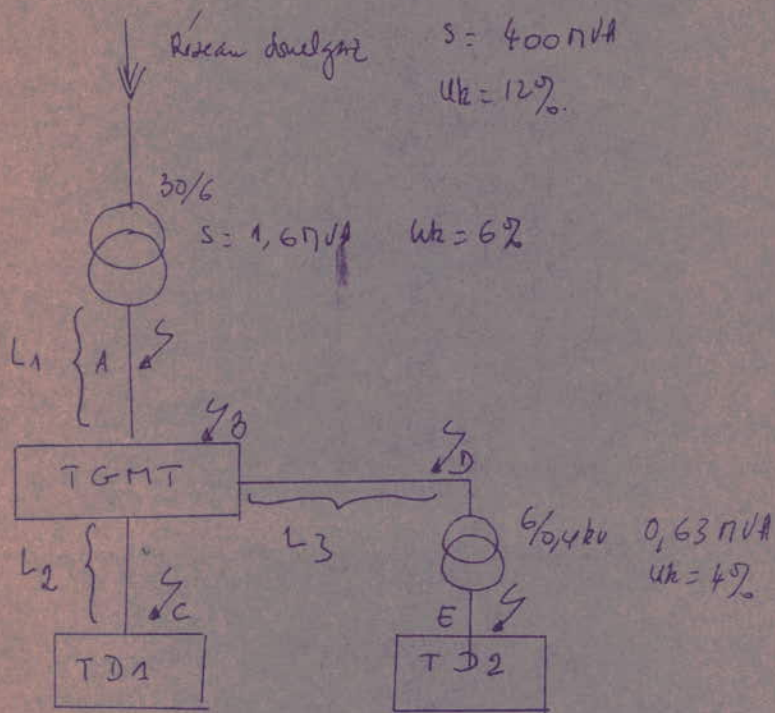 Réseau Sonelgaz S = 400 MVA
Uk = 12%.
30/6
S = 1,6 MVA Uk = 6%
L1 A
B
TGMT
D
L3
6/0,4 kv 0,63 MVA
Uk = 4%
L2
C
E
TD1
TD2